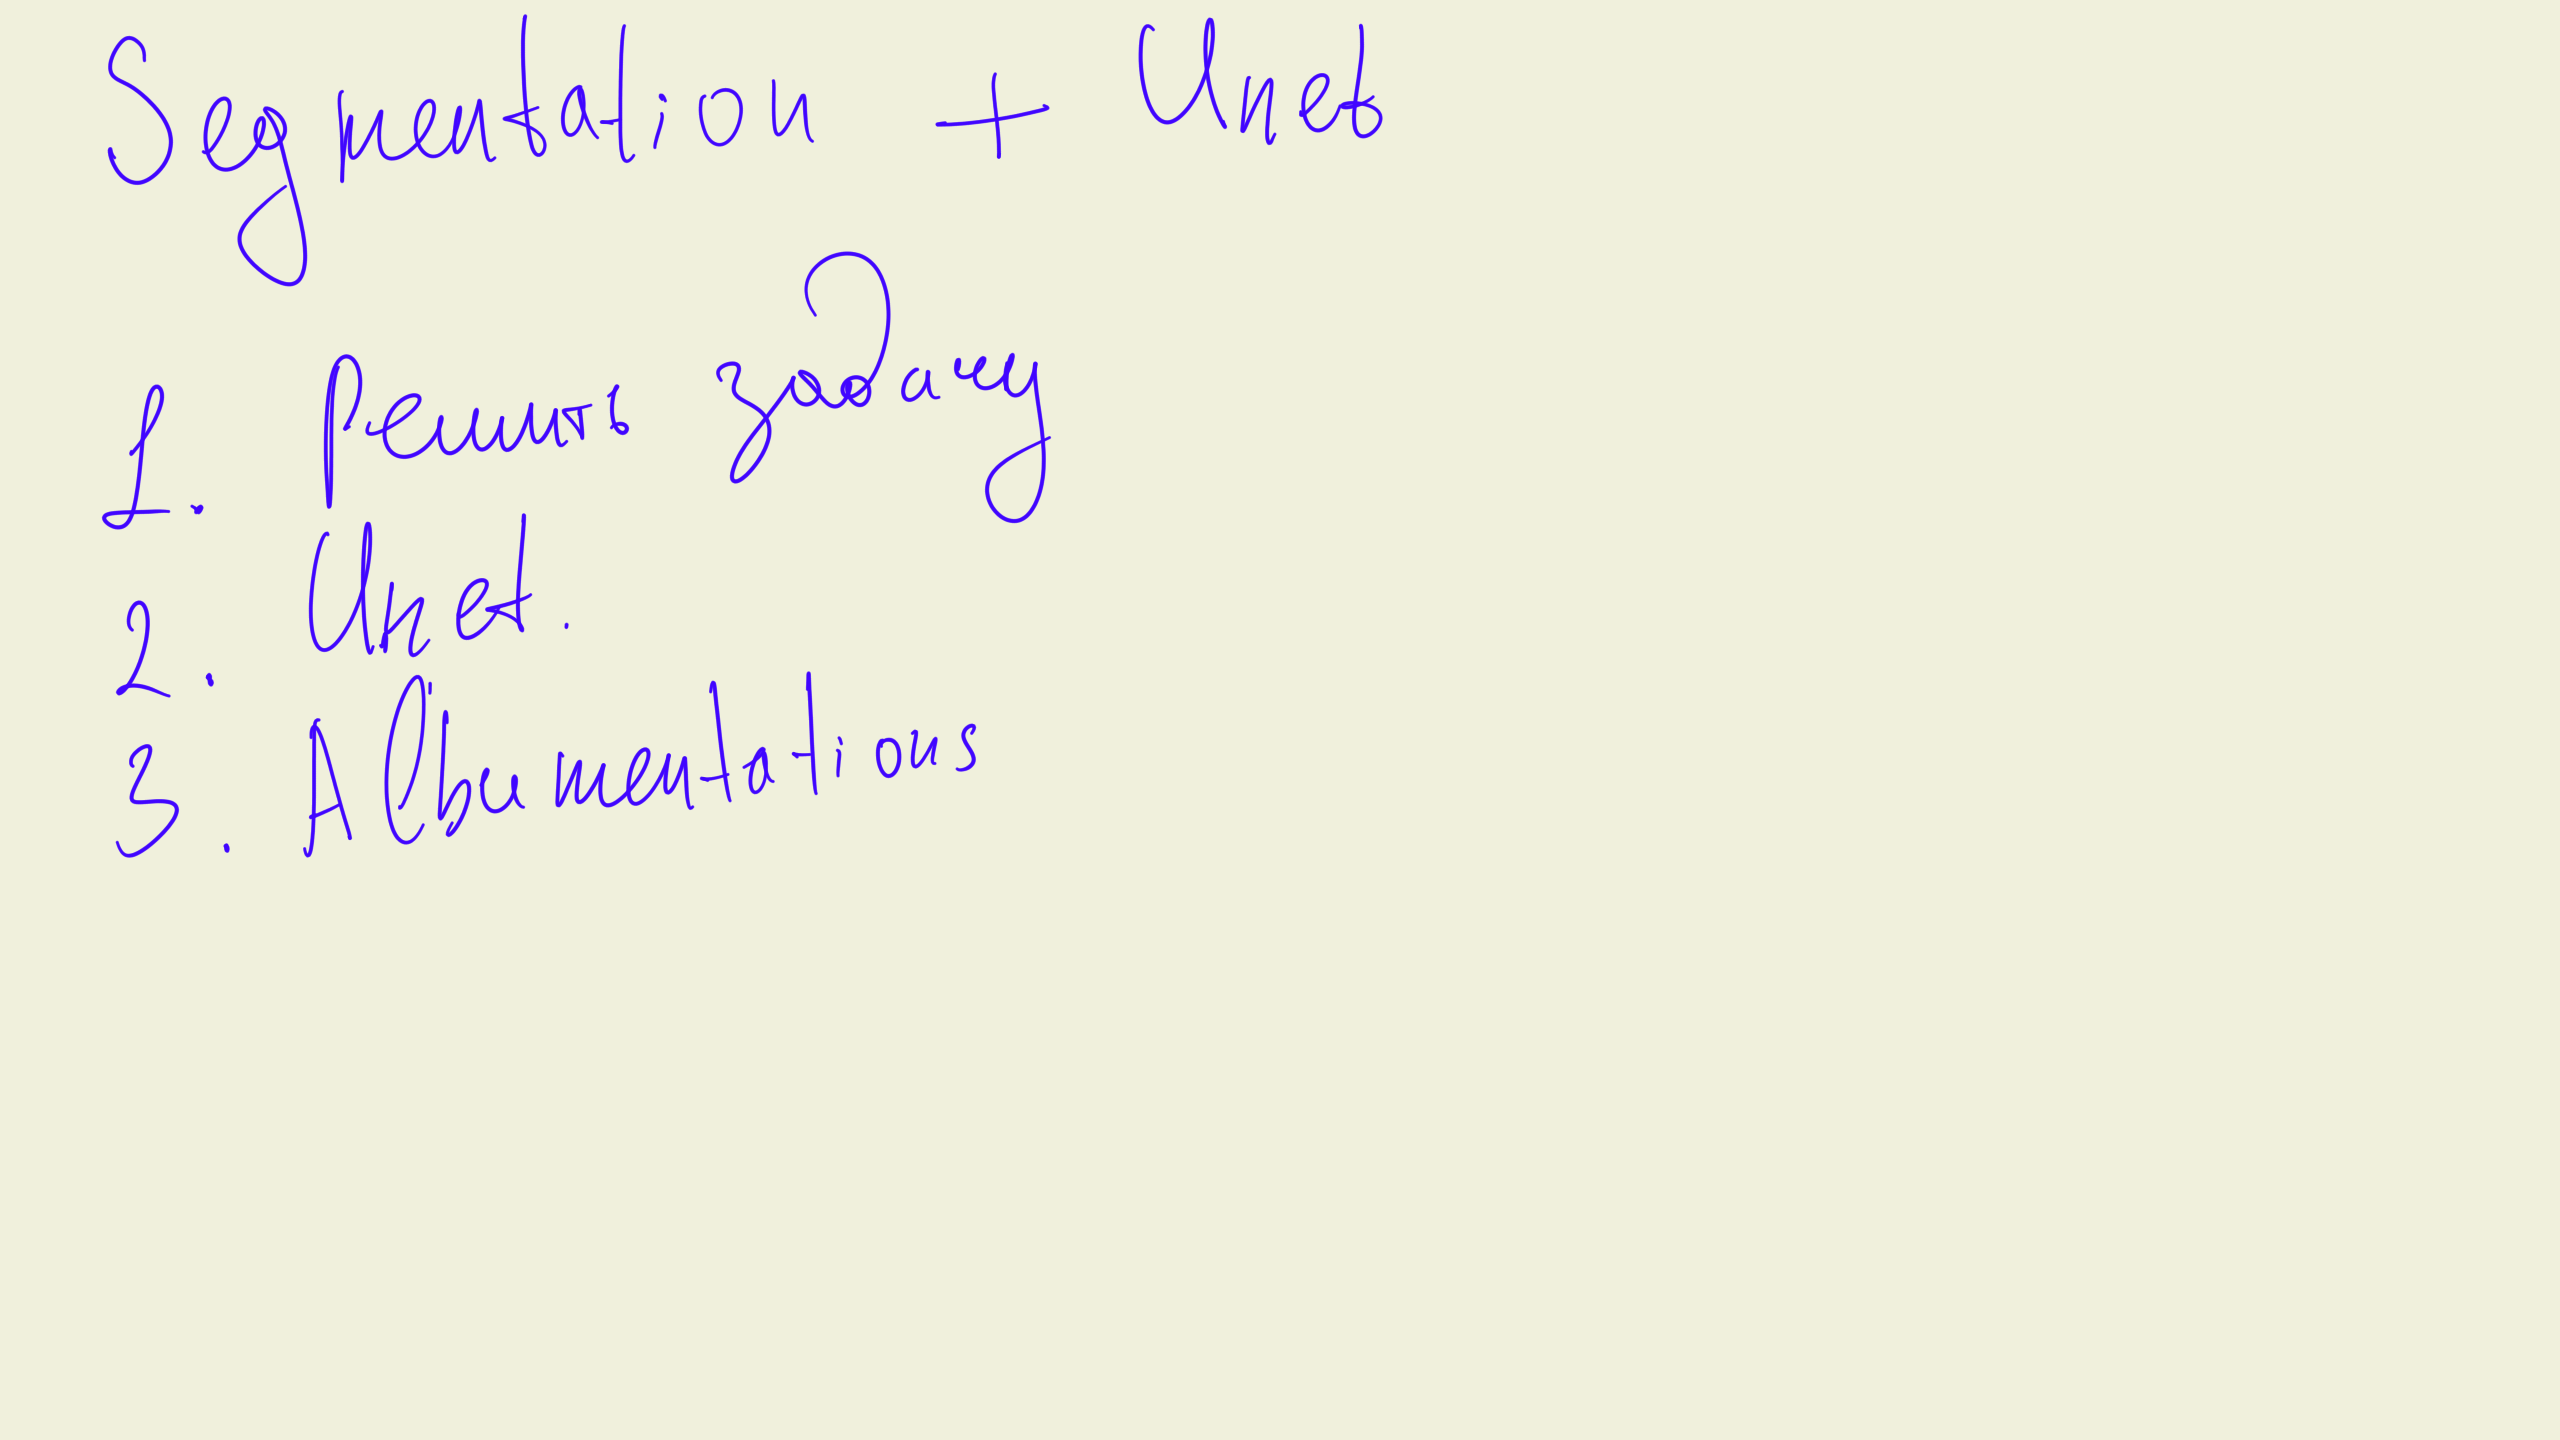 Segmentation + Unet
1. Решить задачу
2. Unet.
3. Albumentations